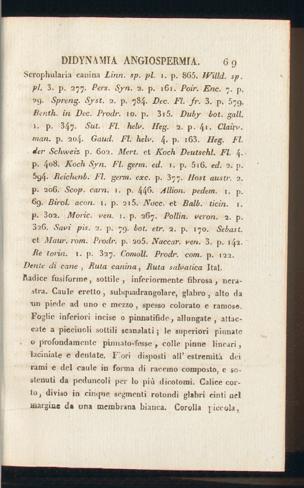 DIDYNAMIA ANGIOSPERMIA. 69
Scrophularia canina Linn. sp. pl. 1. p. 865. Willd. sp.
pl. 3. p. 277. Pers. Syn. 2. p. 161. Poir. Enc. 7. p.
29. Spreng. Syst. 2. p. 784. Dec. Fl. fr. 3. p. 579.
Benth. in Dec. Prodr. 10. p. 315. Duby bot. gall.
1. p. 347. Sut. Fl. helv. Heg. 2. p. 41. Clairv.
man. p. 204. Gaud. Fl. helv. 4. p. 163. Heg. Fl.
der Schweiz p. 602. Mert. et Koch Deutschl. Fl. 4.
p. 408. Koch Syn. Fl. germ. ed. 1. p. 516. ed. 2. p.
594. Reichenb. Fl. germ. exc. p. 377. Host austr. 2.
p. 206. Scop. carn. 1. p. 446. Allion. pedem. 1. p.
69. Birol. acon. 1. p. 215. Nocc. et Balb. ticin. 1.
p. 302. Moric. ven. 1. p. 267. Pollin. veron. 2. p.
326. Savi pis. 2. p. 79. bot. etr. 2. p. 170. Sebast.
et Maur. rom. Prodr. p. 205. Naccar. ven. 3. p. 142.
Re torin. 1. p. 327. Comoll. Prodr. com. p. 122.
Dente di cane, Ruta canina, Ruta salvatica Ital.
Radice fusiforme, sottile, inferiormente fibrosa, nera-
stra. Caule eretto, subquadrangolare, glabro, alto da
un piede ad uno e mezzo, spesso colorato e ramose.
Foglie inferiori incise o pinnatifide, allungate, attac-
cate a picciuoli sottili scanalati; le superiori pinnate
o profondamente pinnato-fesse, colle pinne lineari,
laciniate e dentate. Fiori disposti all'estremità dei
rami e del caule in forma di racemo composto, e so-
stenuti da peduncoli per lo più dicotomi. Calice cor-
to, diviso in cinque segmenti rotondi glabri cinti nel
margine da una membrana bianca. Corolla piccola,